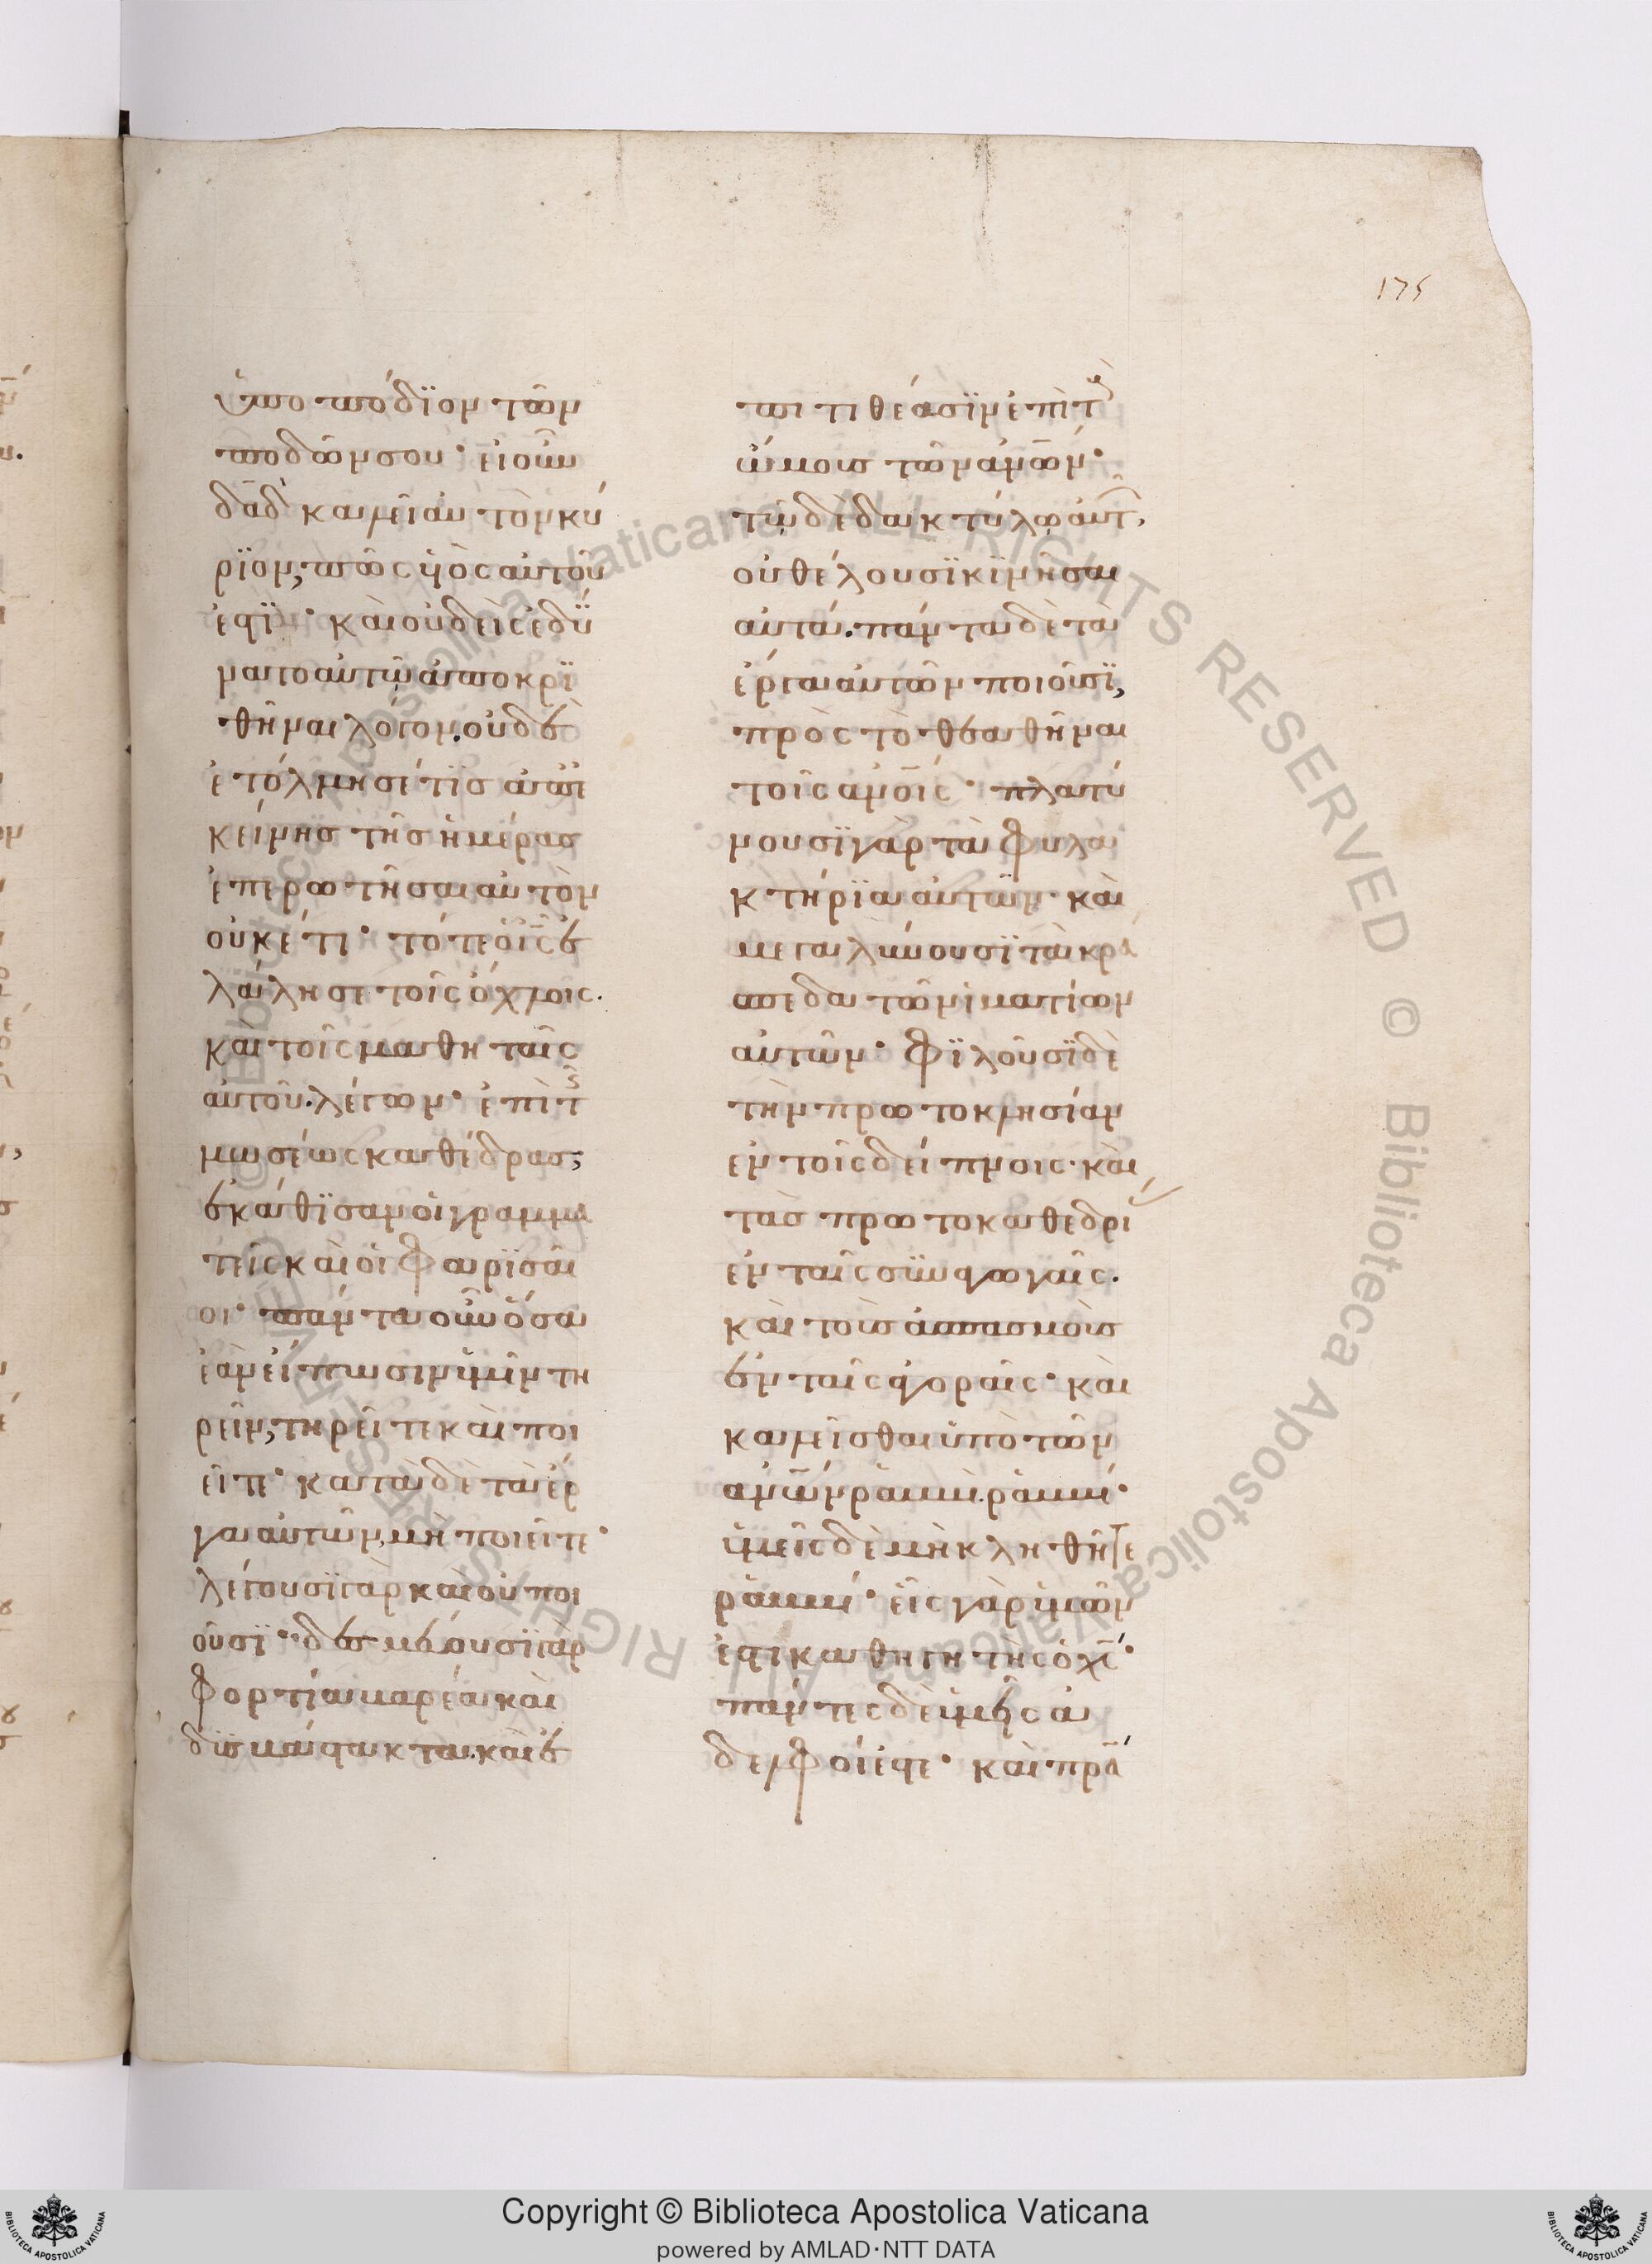 175
ὑποπόδϊον τῶν
ποδῶν σου· εἰ οὖν
δᾱδ καλεῖ αὐτὸν κύ
ρϊον, πῶς ϋἱὸς αὐτοῦ
ἐστϊ· καὶ οὐδεὶς ἐδύ
νατο αὐτῷ ἀποκρϊ
θῆναι λόγον. οὐδὲ
ἐτόλμησέ τϊς ἀπ'ἐ
κείνης τῆς ἡμέρας
ἐπερωτῆσαι αὐτὸν
οὐκέτι· τότε ὁ ῑς ἐ
λάλησε τοῖς ὄχλοις.
καὶ τοῖς μαθηταῖς
αὐτοῦ. λέγων· ἐπὶ τῆς
μωσέως καθέδρας,
ἐκάθϊσαν οἱ γραμμα
τεῖς καὶ οἱ Φαρϊσαῖ
οι· πάντα οὖν ὅσα
ἐὰν εἴπωσιν ὑμῖν τη
ρεῖν, τηρεῖτε καὶ ποι
εῖτε· κατὰ δὲ τὰ ἔρ
γα αὐτῶν, μὴ ποιεῖτε·
λέγουσϊ γὰρ καὶ οὐ ποι
οῦσϊ· δεσμεύουσϊ γὰρ
Φορτία βαρέα καὶ
δϋσβάστακτα. καὶ ἐ
πιτιθέασϊν ἐπὶ τοὺς
ὤμους τῶν ᾱνῶν·
τῷ δὲ δακτύλῳ αὐτῶν,
οὐ θέλουσϊ κϊνῆσαι
αὐτά. πάντα δὲ τὰ
ἔργα αὐτῶν ποιοῦσϊ,
πρὸς τὸ θεαθῆναι
τοῖς ᾱνοις· πλατύ
νουσϊ γὰρ τὰ Φυλα
κτήρϊα αὐτῶν· καὶ
μεγαλύνουσϊ τὰ κρά
σπεδα τῶν ἱματίων
αὐτῶν· Φϊλοῦσϊ δὲ
τὴν πρωτοκλησίαν
ἐν τοῖς δείπνοις· καὶ
τὰς πρωτοκαθεδρί
ἐν ταῖς σϋναγωγαῖς.
καὶ τοὺς ἀσπασμοὺς
ἐν ταῖς ἀγοραῖς· καὶ
καλεῖσθαι ὑπὸ τῶν
ᾱνων ῥαββὶ. ῥαββί·
ὑμεῖς δὲ μὴ κληθῆτε
ῥαββί· εἷς γὰρ ὑμῶν
ἐστι καθηγητὴς ὁ χ̄ς·
πάντες δὲ ὑμεῖς ἀ
δελφοί ἐστε· καὶ πρ̄α
Copyright © Biblioteca Apostolica Vaticana
powered by AMLAD·NTT DATA